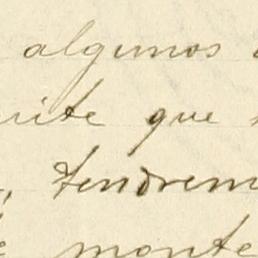 algunos
que
tendrem
monte